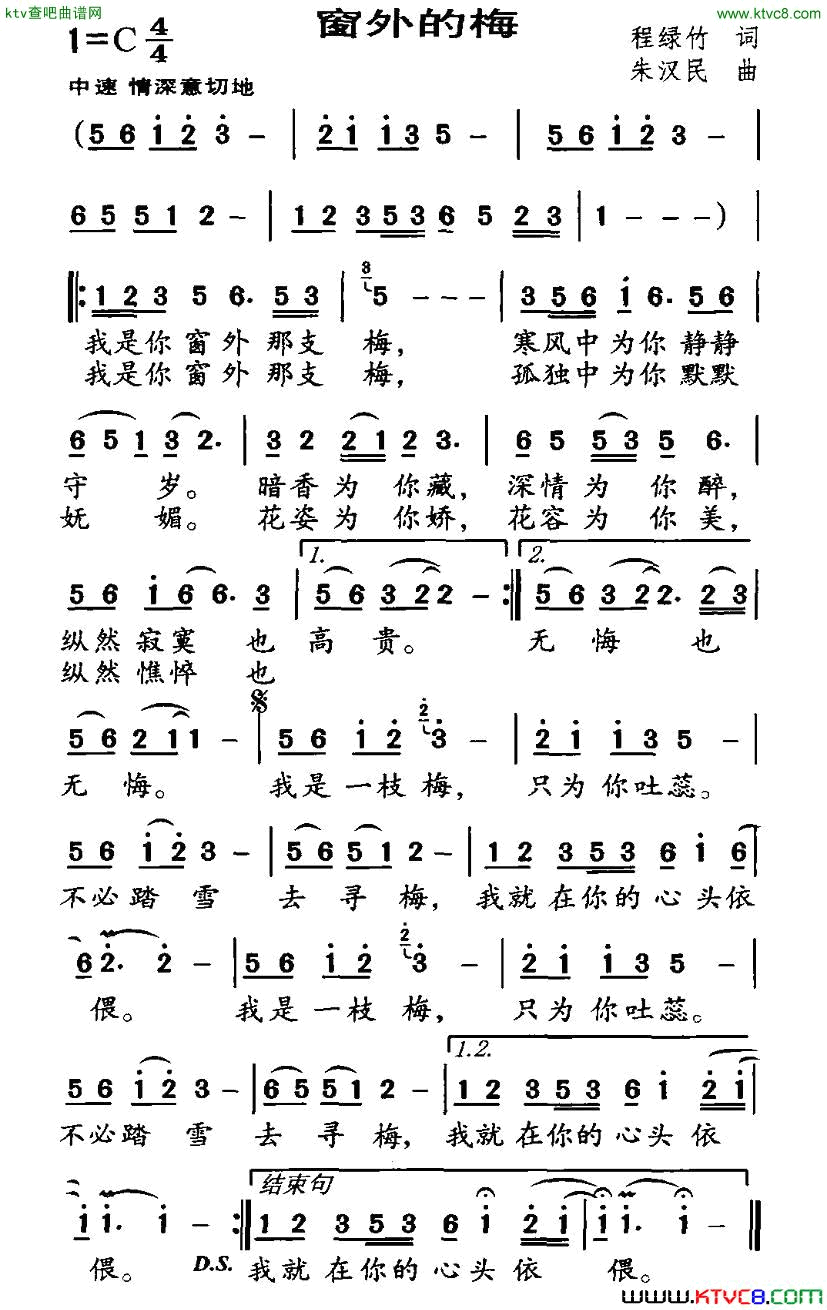 ktv查吧曲谱网
www.ktvc8.com
窗外的梅
1=C 4/4
程绿竹 词
朱汉民 曲
中速 情深意切地
(5 6 1 2 3 - | 2 1 1 3 5 - | 5 6 1 2 3 - |
6 5 5 1 2 - | 1 2 3 5 3 6 5 2 3 | 1 - - - )
1 2 3 5 6. 5 3 | 3 5 - - - | 3 5 6 1 6. 5 6
我是你 窗 外 那支 梅， 寒风中 为你 静静
我是你 窗 外 那支 梅， 孤独中 为你 默默
6 5 1 3 2. | 3 2 2 1 2 3. | 6 5 5 3 5 6. |
守 岁。 暗香 为 你藏， 深情 为 你 醉，
妩 媚。 花姿 为 你娇， 花容 为 你 美，
1. 2.
5 6 1 6 6. 3 | 5 6 3 2 2 - :| 5 6 3 2 2. 2 3 |
纵然 寂寞 也 高 贵。 无 悔 也
纵然 憔悴 也
5 6 2 1 1 - | 5 6 1 2 2 3. | 2 1 1 3 5 - |
无 悔。 我是 一枝 梅， 只为 你吐蕊。
5 6 1 2 3 - | 5 6 5 1 2 - | 1 2 3 5 3 6 1 6 |
不必踏 雪 去 寻 梅， 我就 在你的 心头依
6 2. 2 - | 5 6 1 2 2 3. | 2 1 1 3 5 - |
偎。 我是 一枝 梅， 只为 你吐蕊。
1.2.
5 6 1 2 3 - | 6 5 5 1 2 - | 1 2 3 5 3 6 1 2 1 |
不必踏 雪 去 寻 梅， 我就 在你的 心头 依
结束句
1 1. 1 - :| 1 2 3 5 3 6 1 2 1 | 1 1. 1 - ||
偎。 D.S. 我就 在你的 心头依 偎。
www.KTVC8.COM